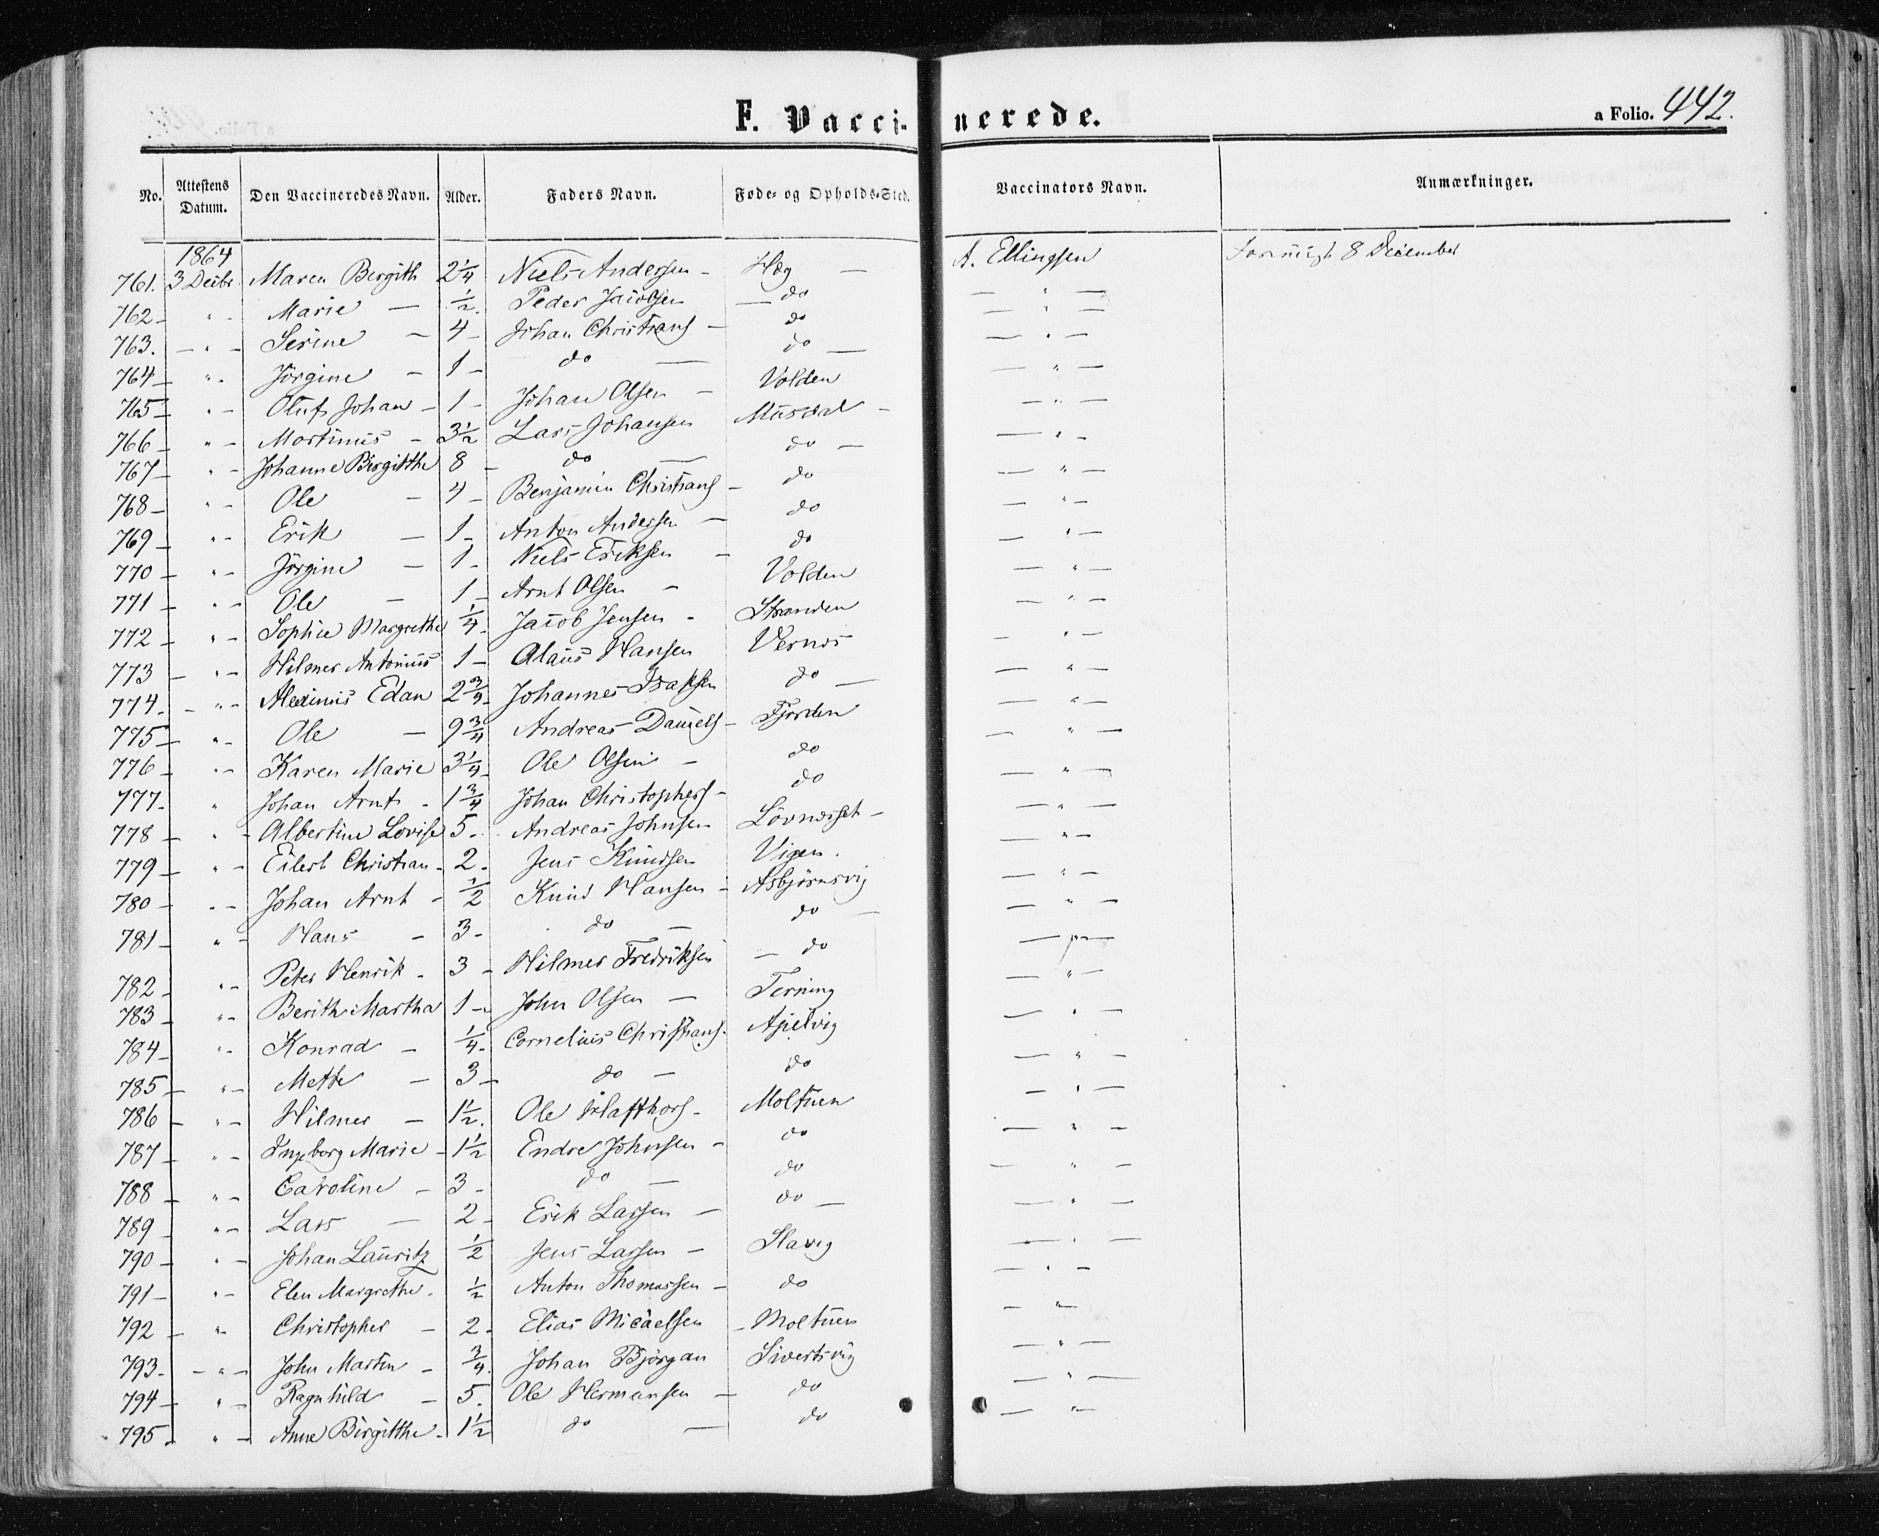 F. Vaccinerede.
a Folio. 442.
No. Attestens Datum. Den Vaccineredes Navn. Alder. Faders Navn. Føde- og Opholds-Sted. Vaccinators Navn. Anmærkninger.
1864
761. 3 Decbr. Maren Bergith 2 1/4 Niels Andersen - Hæg — A. Ellingsen 8 December
762 - " - Marie — 1/2. Peder Jacobsen — do — " —
763. - " - Serine — 4 - Johan Christians - do — " —
764 - " - Jørgine - 1 - do — do — — " —
765 - " - Oluf Johan - 1 - Johan Olsen - Volden — " —
766 - " - Martinus - 3 1/2 Lars Johansen Musdal - — " —
767 - " - Johanne Birgitthe 8 - do — do — — " -
768 - " - Ole - 4 - Benjamin Christians - do — " —
769 - " - Erik — 1 - Anton Andersen — do — " —
770 - " - Jørgine — 1 - Niels Eriksen - do — " —
771 - " - Ole — 1 - Arnt Olsen - Volden — " —
772 - " - Sophie Margrethe 1/4 - Jacob Jensen - Stranden — " —
773 - " - Hilmer Antonius 1 - Claus Hansen Vernes — " —
774. - " - Aleximus Edan 2 3/4 - Johannes Isaksen do — — " —
775 - " - Ole — 9 3/4 Andreas Daniels - Fjorden — " —
776 - " - Karen Marie 3 1/4 - Ole Olsen - do — " —
777 - " Johan Arnt - 1 3/4 Johan Christophers - do — " —
778 - " - Albertine Lovise 5. Andreas Johnsen — " —
779 - " - Eilert Christian - 2 - Jens Knudsen Vigen. — " —
780 - " - Johan Arnt - 1/2 Knud Hansen - Asbjørnsvig — " —
781 - " - Hans - 3 - do — do — — " —
782 - " - Peter Henrik - 3 - Hilmer Fredriksen — do — " —
783 - " - Berith Martha 1 - John Olsen — Terning — " —
784 - " - Konrad - 1/4 - Cornelius Christians. Apelvig — " —
785 - " - Mette — 3 - do — do — " —
786 - " - Hilmer — 1 1/2. Ole Hafthors - Moltuen — " —
787 - " - Ingeborg Marie - 1 1/2 Endre Johnsen - do — " —
788 - " - Caroline - 3 - do — do — " —
789 - " - Lars — 2 - Erik Larsen — do — — " —
790 - " - Johan Lauritz 1/2 Jens Larsen - Slavig — " —
791 - " - Elen Margrethe. 1/2 Anton Thomassen - do — " —
792 - " - Christopher - 2 - Elias Micaelsen - Moltuen — " —
793. - " - John Martin - 3/4. Johan Bjørgan Sivertsvig — " —
794 - " - Ragnhild - 5. Ole Hermansen - do — " —
795. " - Anne Birgitthe - 1 1/2 do — do — " —